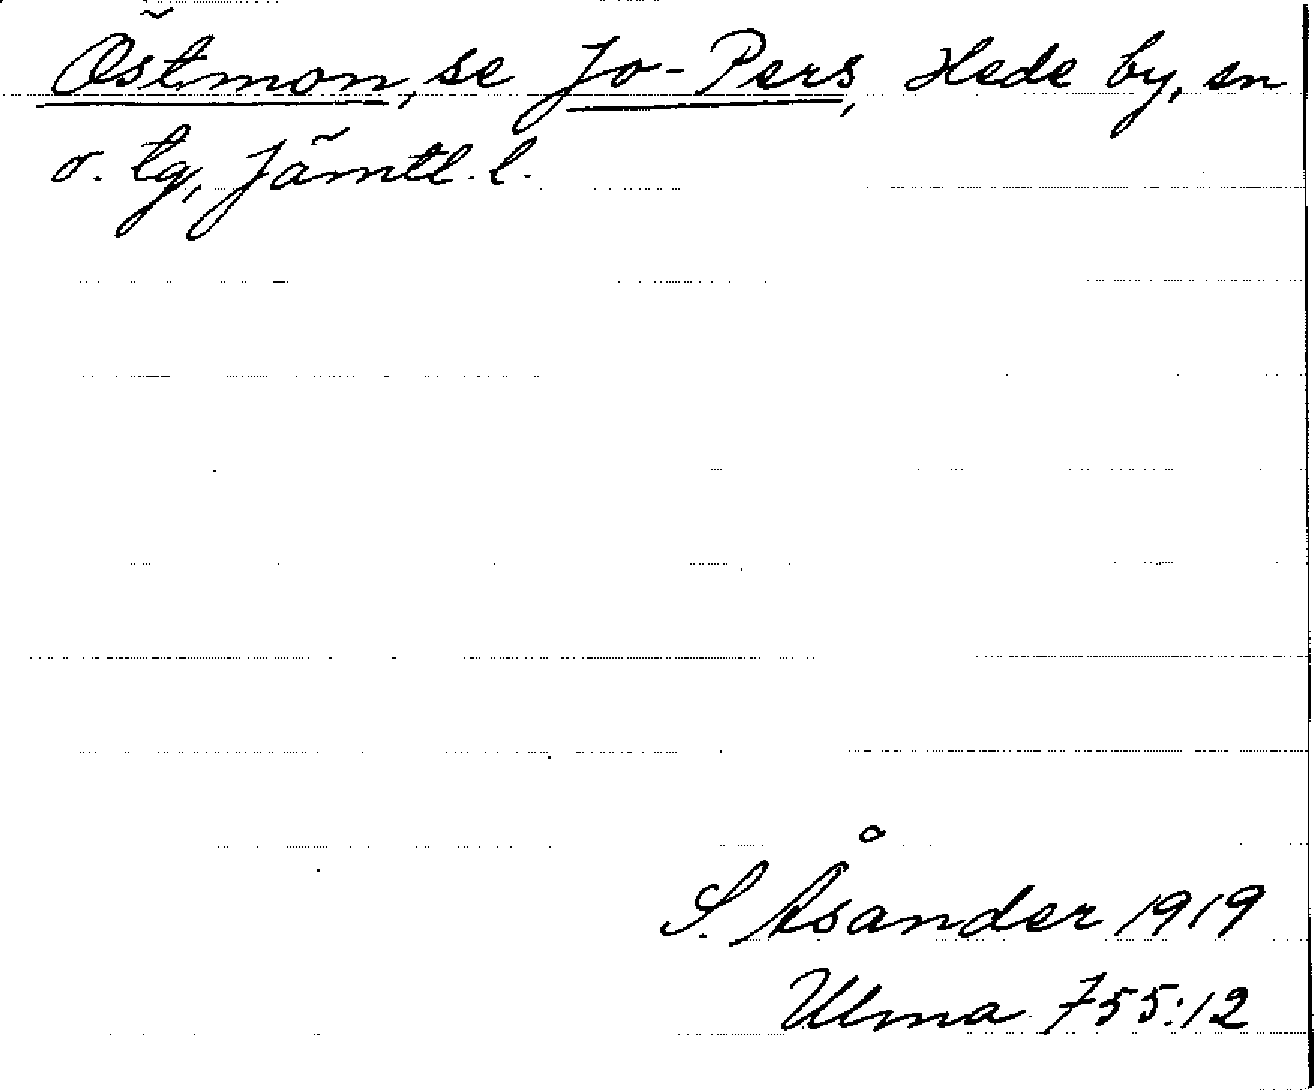 Östmon, se Jo-Pers, Hede by, sn
o. tg, Jämtl. l.
S. Åsander 1919
Ulma 755:12